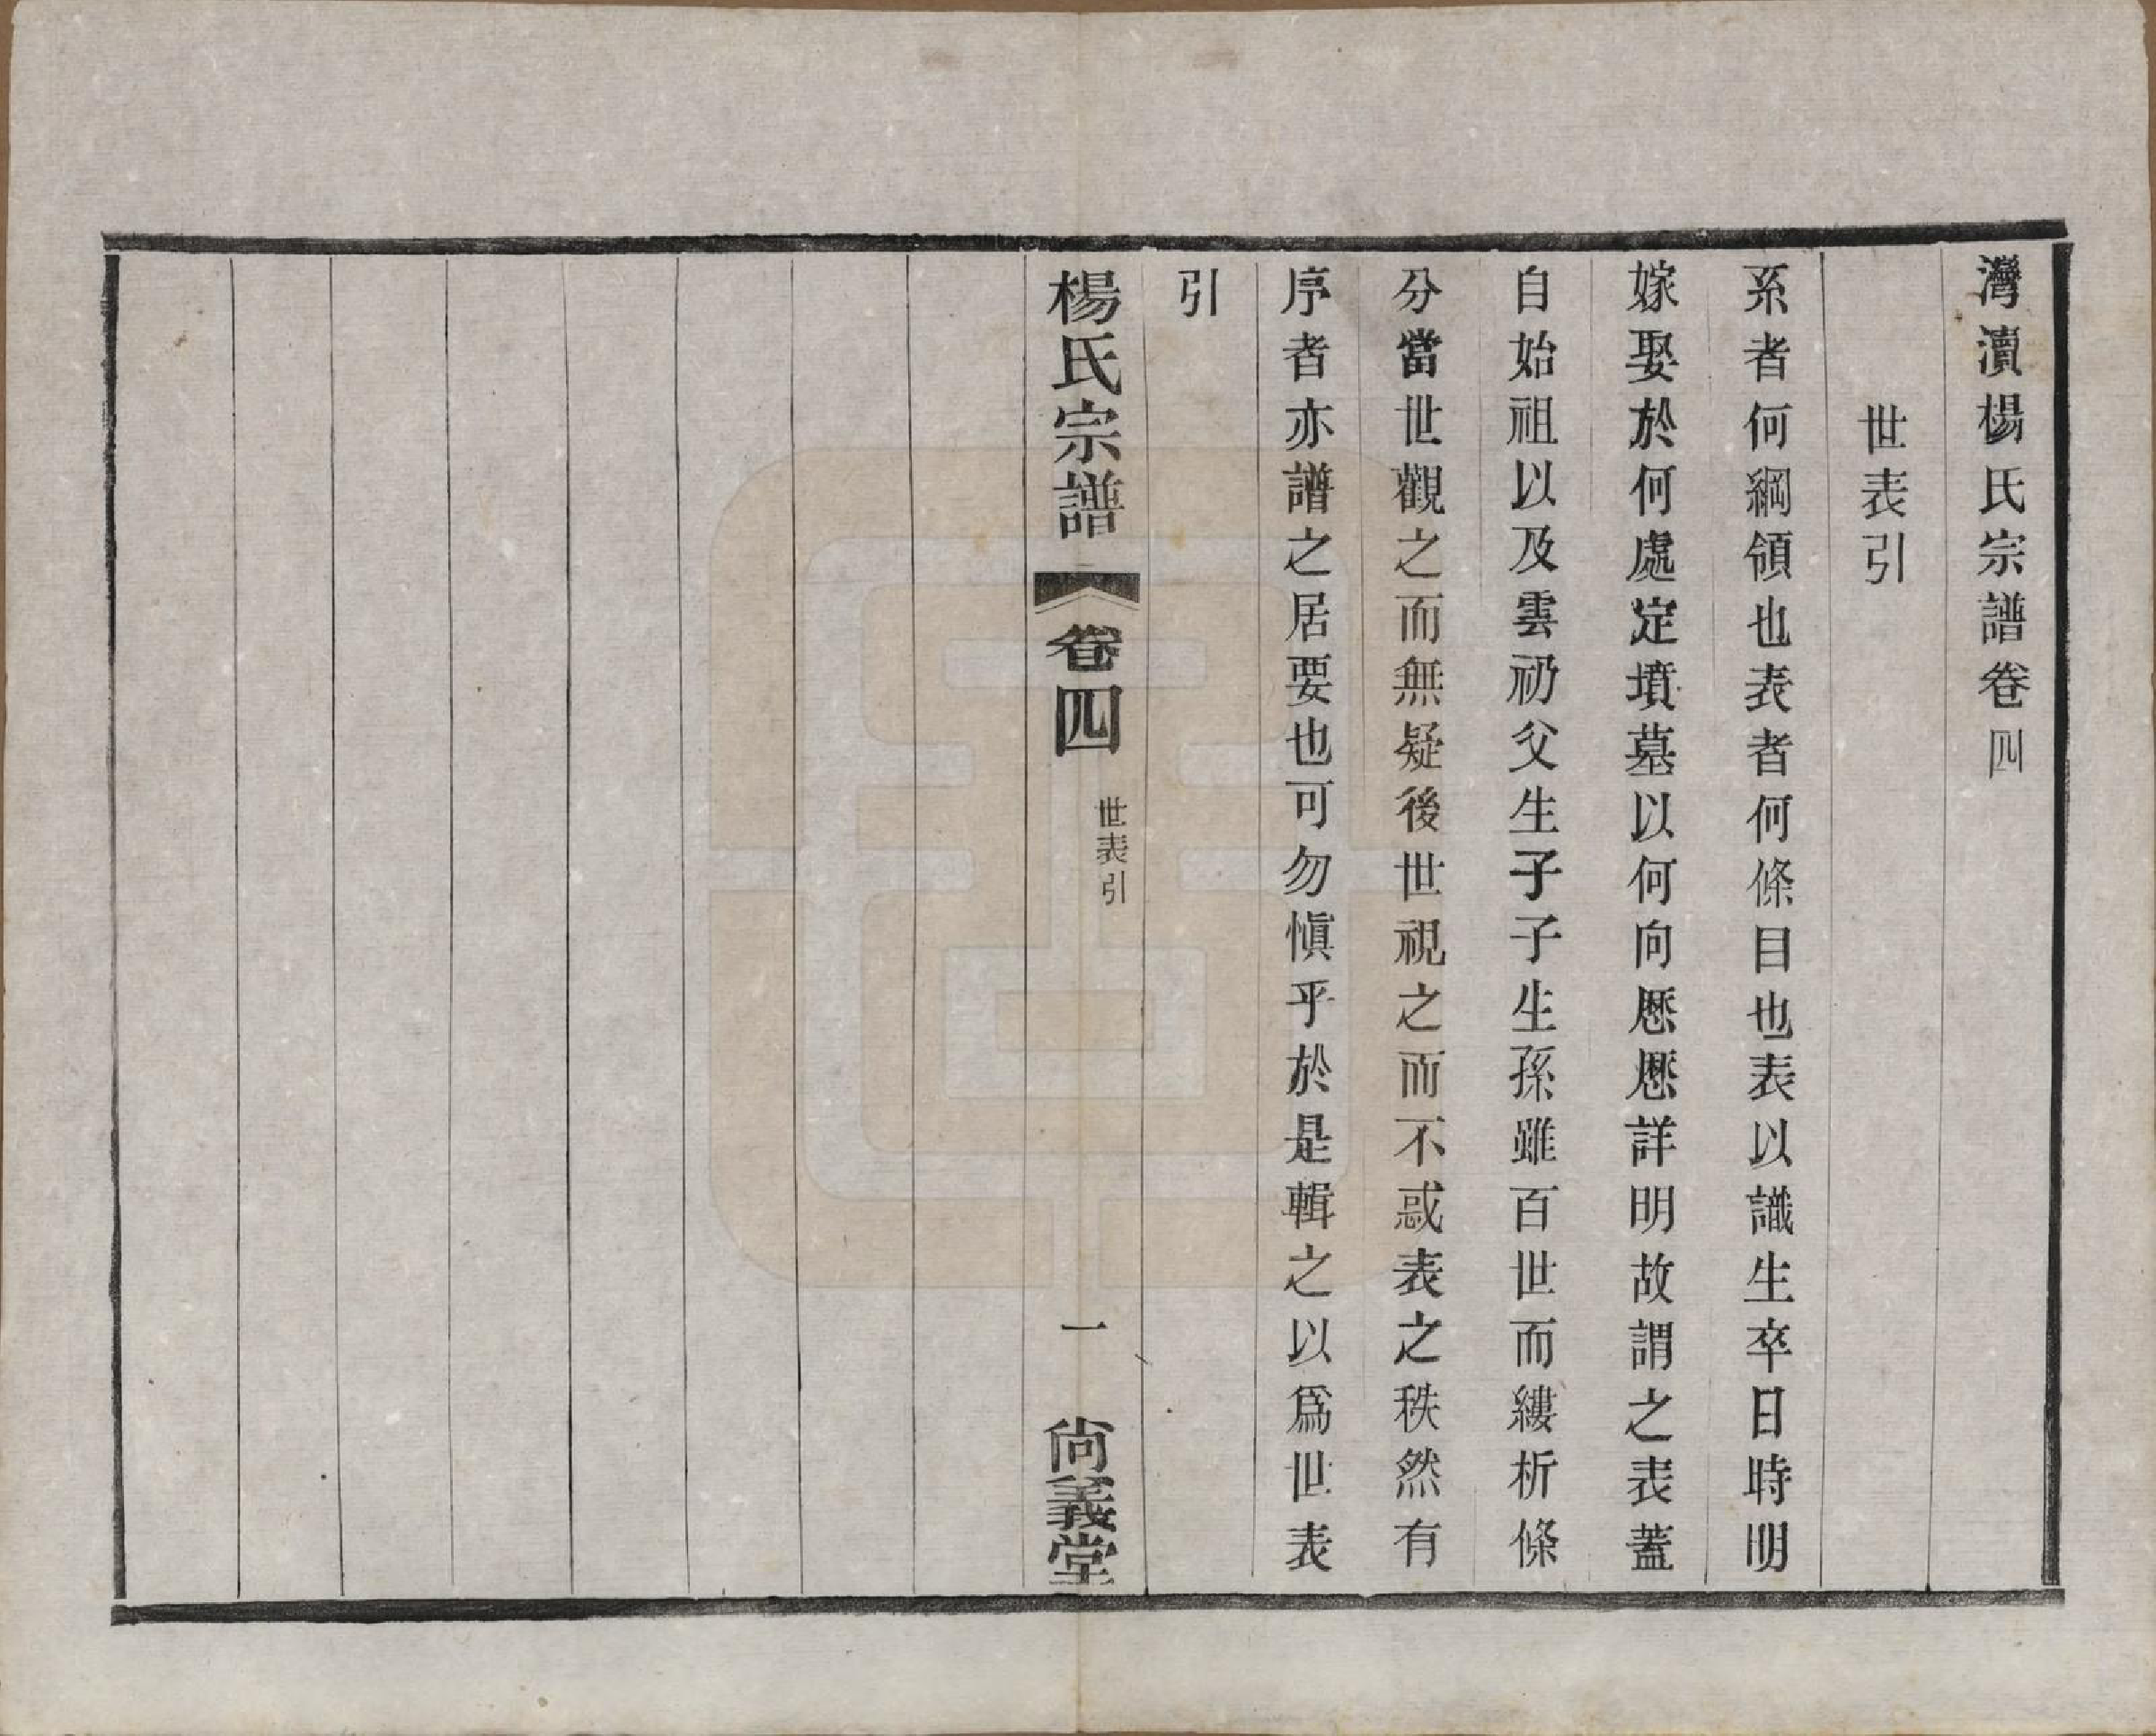 灣瀆楊氏宗譜卷四
世表引
系者何綱領也表者何條目也表以識生卒日時明
嫁娶於何處定墳墓以何向懕懕詳明故謂之表蓋
自始祖以及雲礽父生子子生孫雖百世而縷析條
分當世觀之而無疑後世視之而不惑表之秩然有
序者亦譜之居要也可勿愼乎於是輯之以爲世表
引
楊氏宗譜
卷四
世表引
一
尙義堂